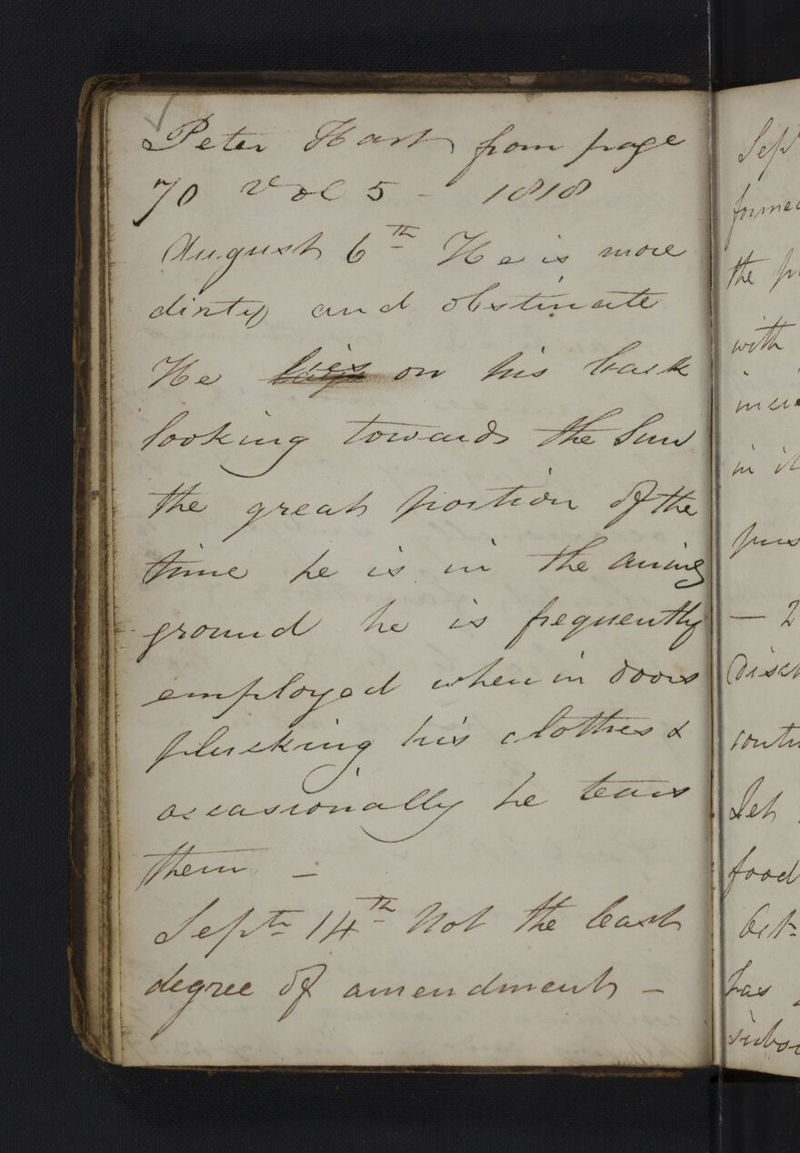 Peter Hart from page
70 Vol 5 - 1818
August 6th He is more
dirty and obstinate
He lies on his back
looking towards the Sun
the great portion of the
time he is in the airing
ground he is frequently
employed when in doors
plucking his clothes &
occasionally he tears
them -
Septr 14th Not the least
degree of amendment -
Sepr
the
with
in it
- 2
Let
food
Octr
has